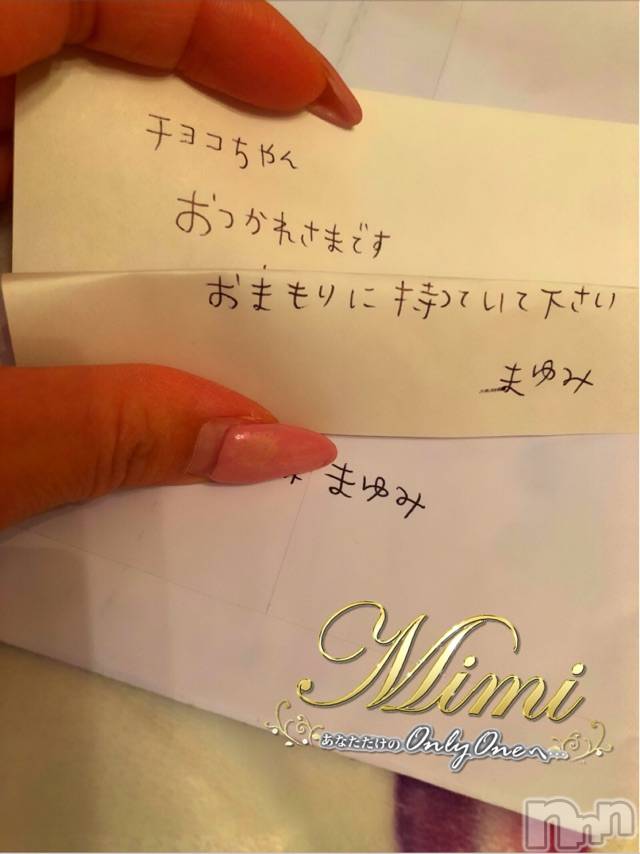 チョコちゃん
おつかれさまです
おまもりに持っていて下さい
まゆみ
まゆみ
Mimi
あなただけの OnlyOneへ…
nnn